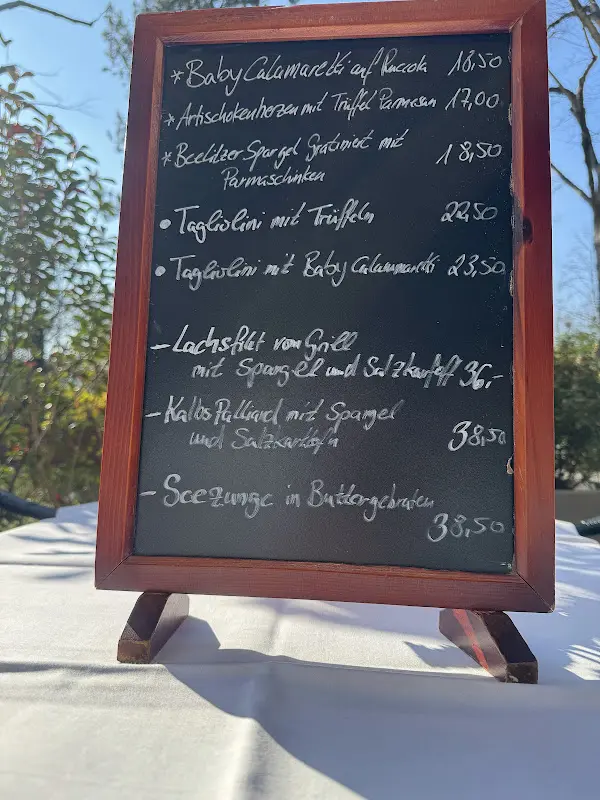 * Baby Calamaretti auf Ruccola 18,50
* Artischokenherzen mit Trüffel Parmesan 17,00
* Beelitzer Spargel Gratiniert mit
Parmaschinken 18,50
• Tagliolini mit Trüffeln 22,50
• Tagliolini mit Baby Calammaretti 23,50
- Lachsfilet vom Grill
mit Spargel und Salzkartoff 36,-
- Kalbs Palliard mit Spargel
und Salzkartofln 38,50
- Seezunge in Butter gebraten
38,50